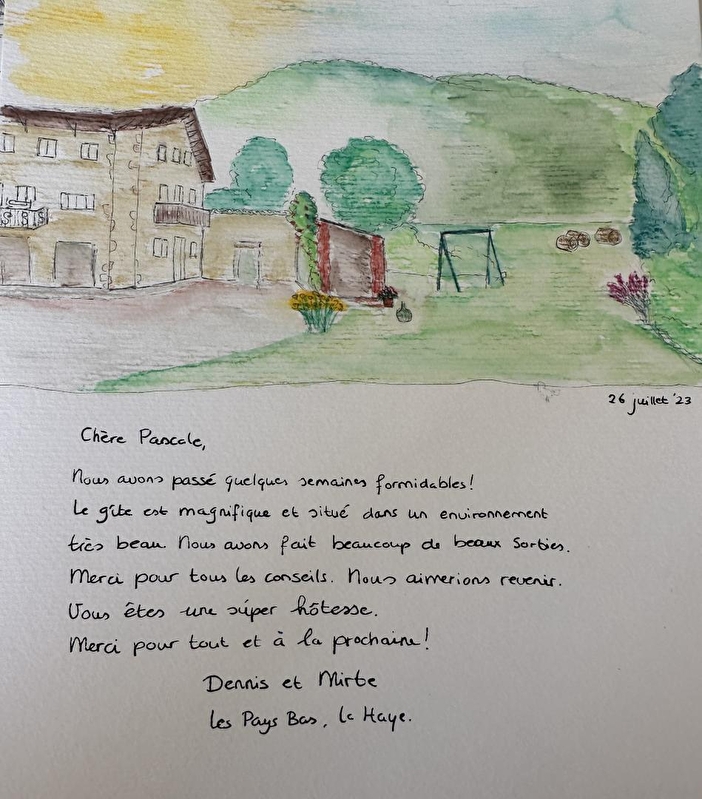 26 juillet '23
Chère Pascale,
Nous avons passé quelques semaines formidables!
Le gîte est magnifique et situé dans un environnement
très beau. Nous avons fait beaucoup de beaux sorties.
Merci pour tous les conseils. Nous aimerions revenir.
Vous êtes une súper hôtesse.
Merci pour tout et à la prochaine!
Dennis et Mirte
les Pays Bas, la Haye.